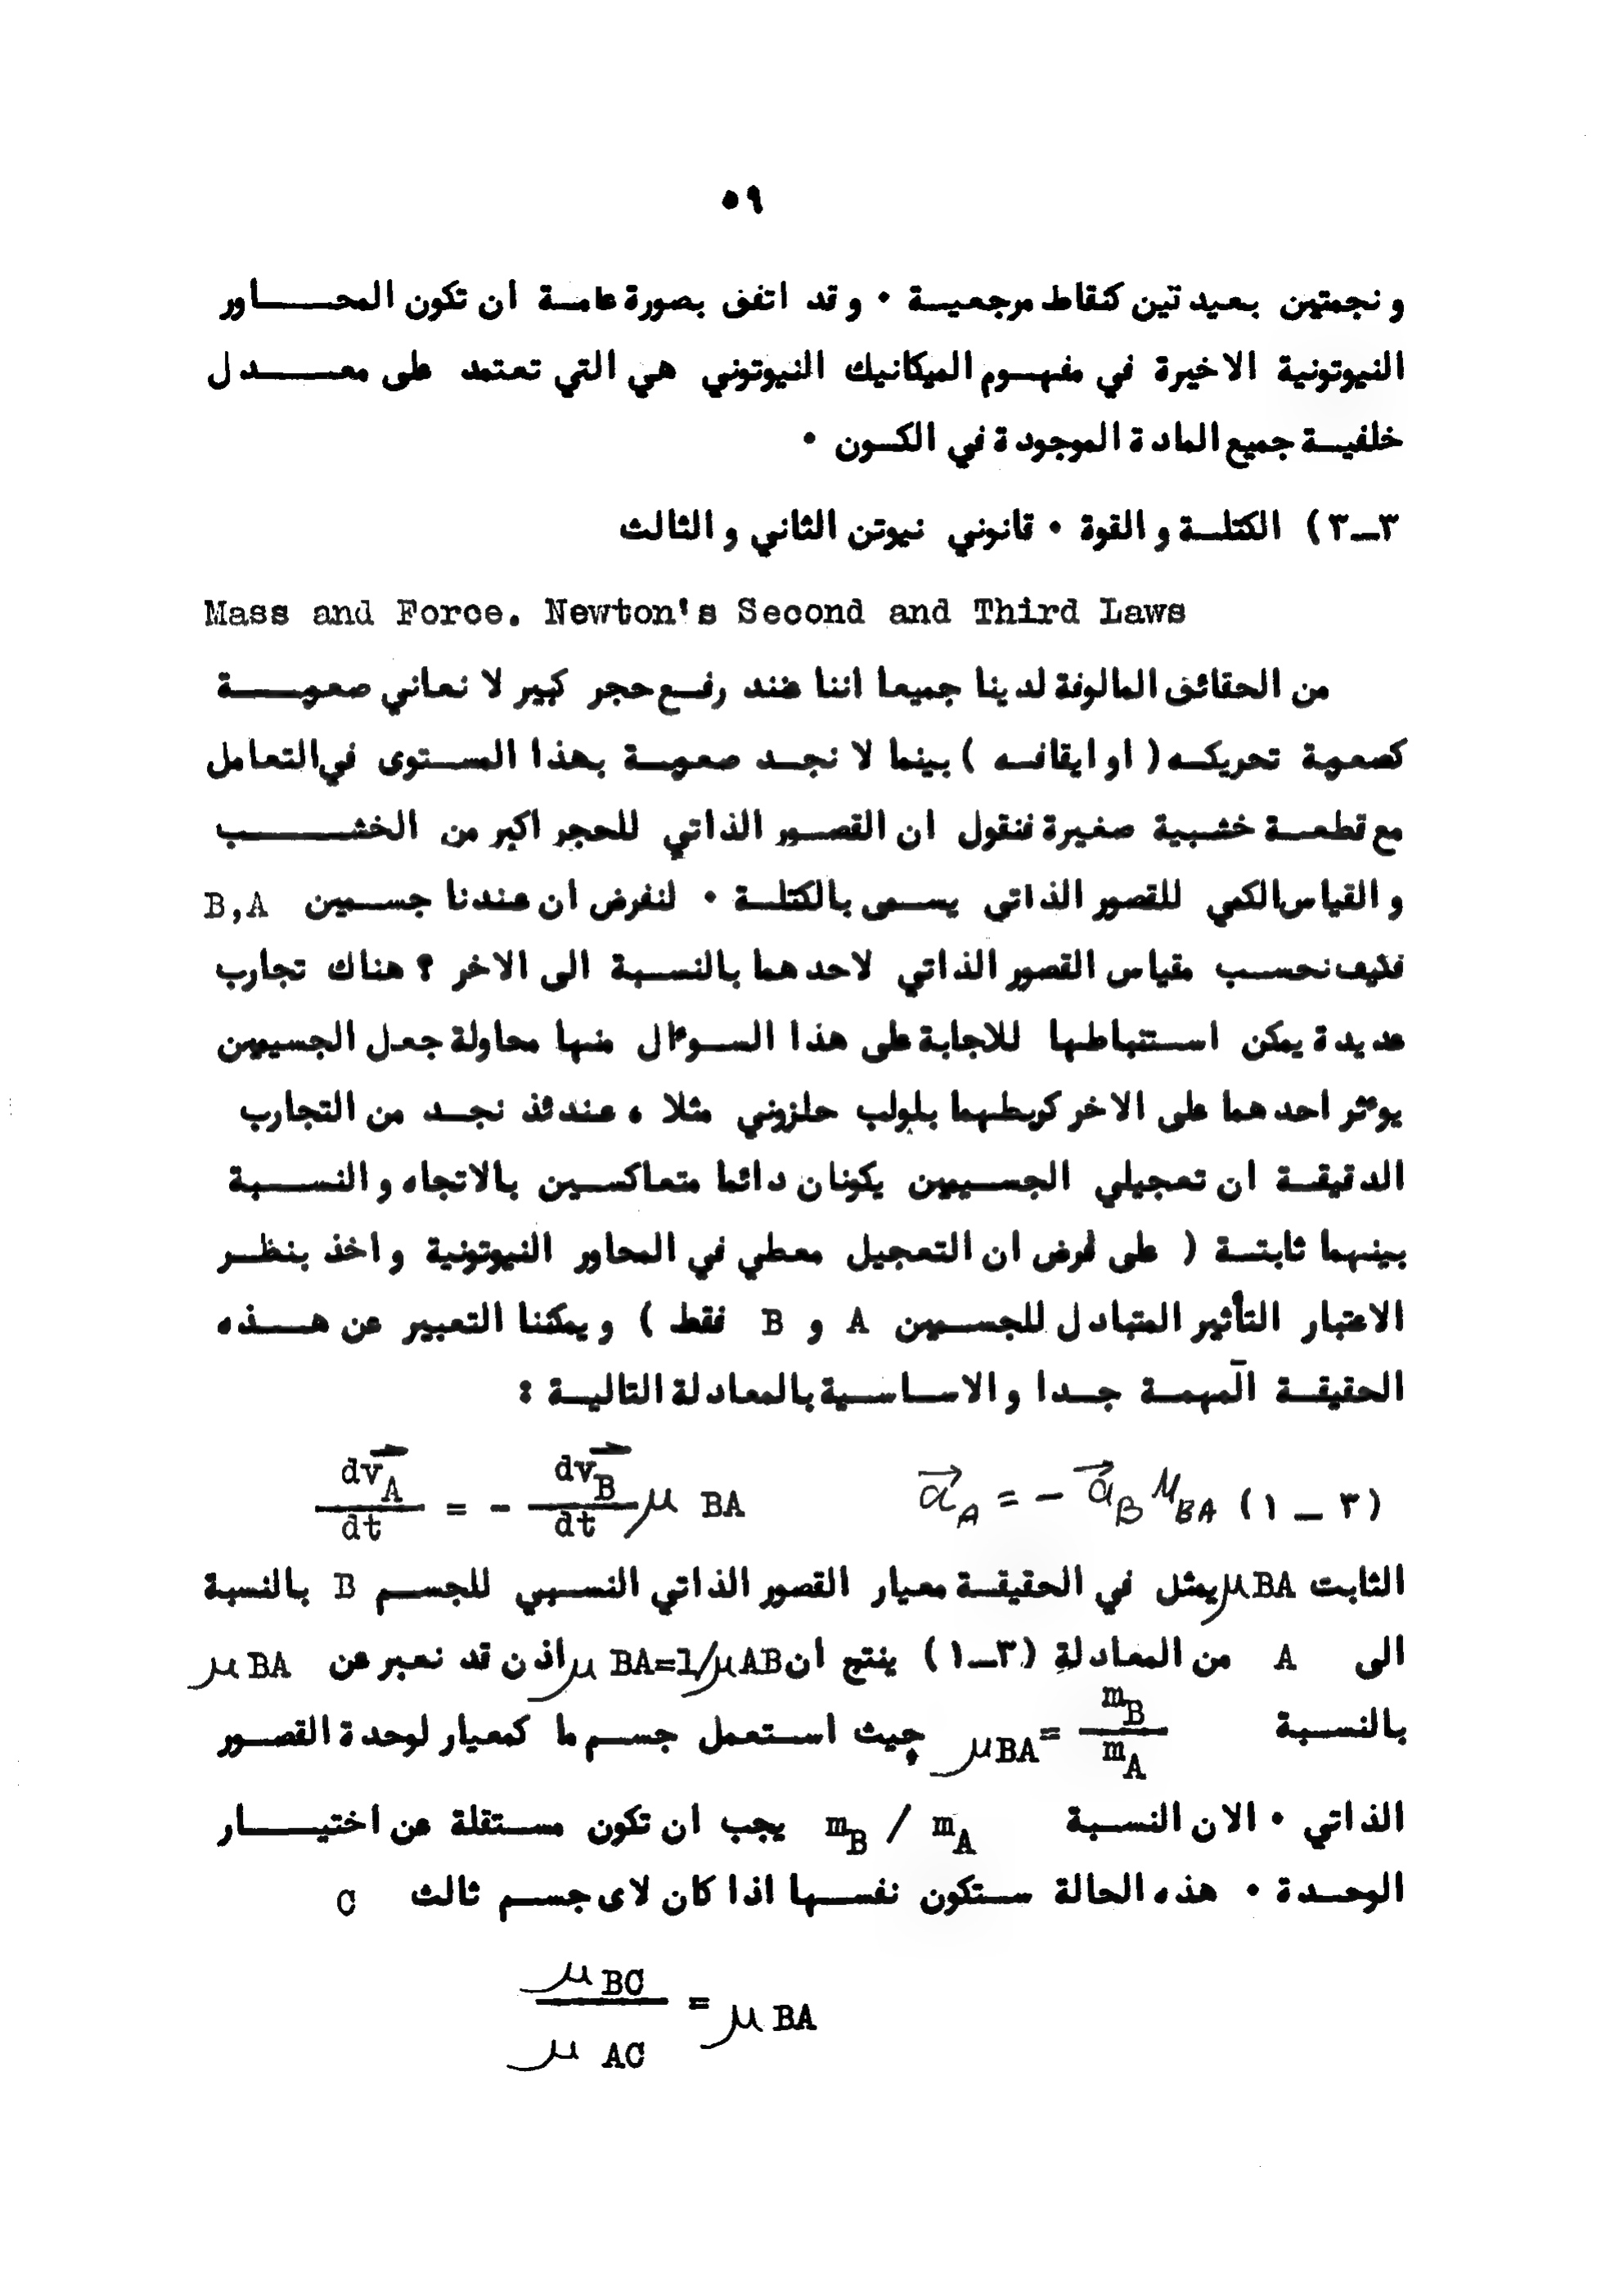 ٥٩
ونجمتين بعيدتين كنقاط مرجعية ٠ وقد اتفق بصورة عامة ان تكون المحاور
النيوتونية الاخيرة في مفهوم الميكانيك النيوتوني هي التي تعتمد على معدل
خلفية جميع المادة الموجودة في الكون ٠
٣_٣) الكتلة والقوة ٠ قانوني نيوتن الثاني والثالث
Mass and Force. Newton's Second and Third Laws
من الحقائق المالوفة لدينا جميعا اننا عند رفع حجر كبير لا نعاني صعوبة
كصعوبة تحريكه (او ايقافه) بينما لا نجد صعوبة بهذا المستوى في التعامل
مع قطعة خشبية صغيرة فنقول ان القصور الذاتي للحجر اكبر من الخشب
والقياس الكمي للقصور الذاتي يسمى بالكتلة ٠ لنفرض ان عندنا جسمين B,A
فكيف نحسب مقياس القصور الذاتي لاحدهما بالنسبة الى الاخر ؟ هناك تجارب
عديدة يمكن استنباطها للاجابة على هذا السوءال منها محاولة جعل الجسيمين
يوءثر احدهما على الاخر كربطهما بلولب حلزوني مثلا ، عندئذ نجد من التجارب
الدقيقة ان تعجيلي الجسيمين يكونان دائما متعاكسين بالاتجاه والنسبة
بينهما ثابتة ( على فرض ان التعجيل معطي في المحاور النيوتونية واخذ بنظر
الاعتبار التأثير المتبادل للجسمين A و B فقط ) ويمكننا التعبير عن هذه
الحقيقة المهمة جدا والاساسية بالمعادلة التالية :
dv⃗_A/dt = - dv⃗_B/dt μ BA a⃗_A = - a⃗_B μ_BA (٣ _ ١)
الثابت μBA يمثل في الحقيقة معيار القصور الذاتي النسبي للجسم B بالنسبة
الى A من المعادلة (٣_١) ينتج ان μ BA=1/μAB اذن قد نعبر عن μ BA
بالنسبة μBA= m_B/m_A حيث استعمل جسم ما كمعيار لوحدة القصور
الذاتي ٠ الان النسبة m_B / m_A يجب ان تكون مستقلة عن اختيار
الوحدة ٠ هذه الحالة ستكون نفسها اذا كان لاى جسم ثالث C
μ BC / μ AC = μ BA